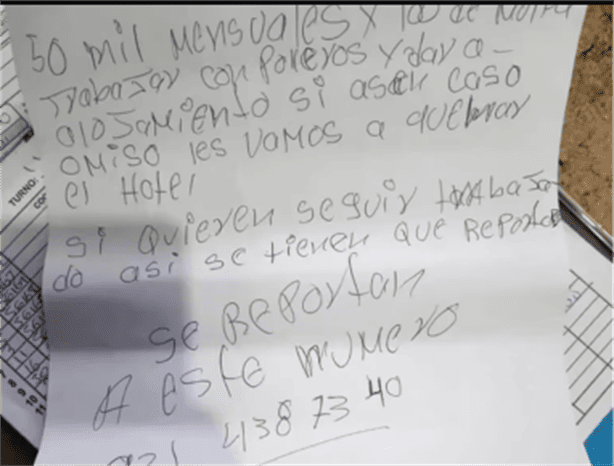 50 mil mensuales x
trabajar con poreros y dar a-
alojamiento si asen caso
omiso les vamos a quebrar
el Hotel
si quieren seguir trabajan
do asi se tienen que Reportar
se Reportan
A este numero
438 73 40
TURNO: